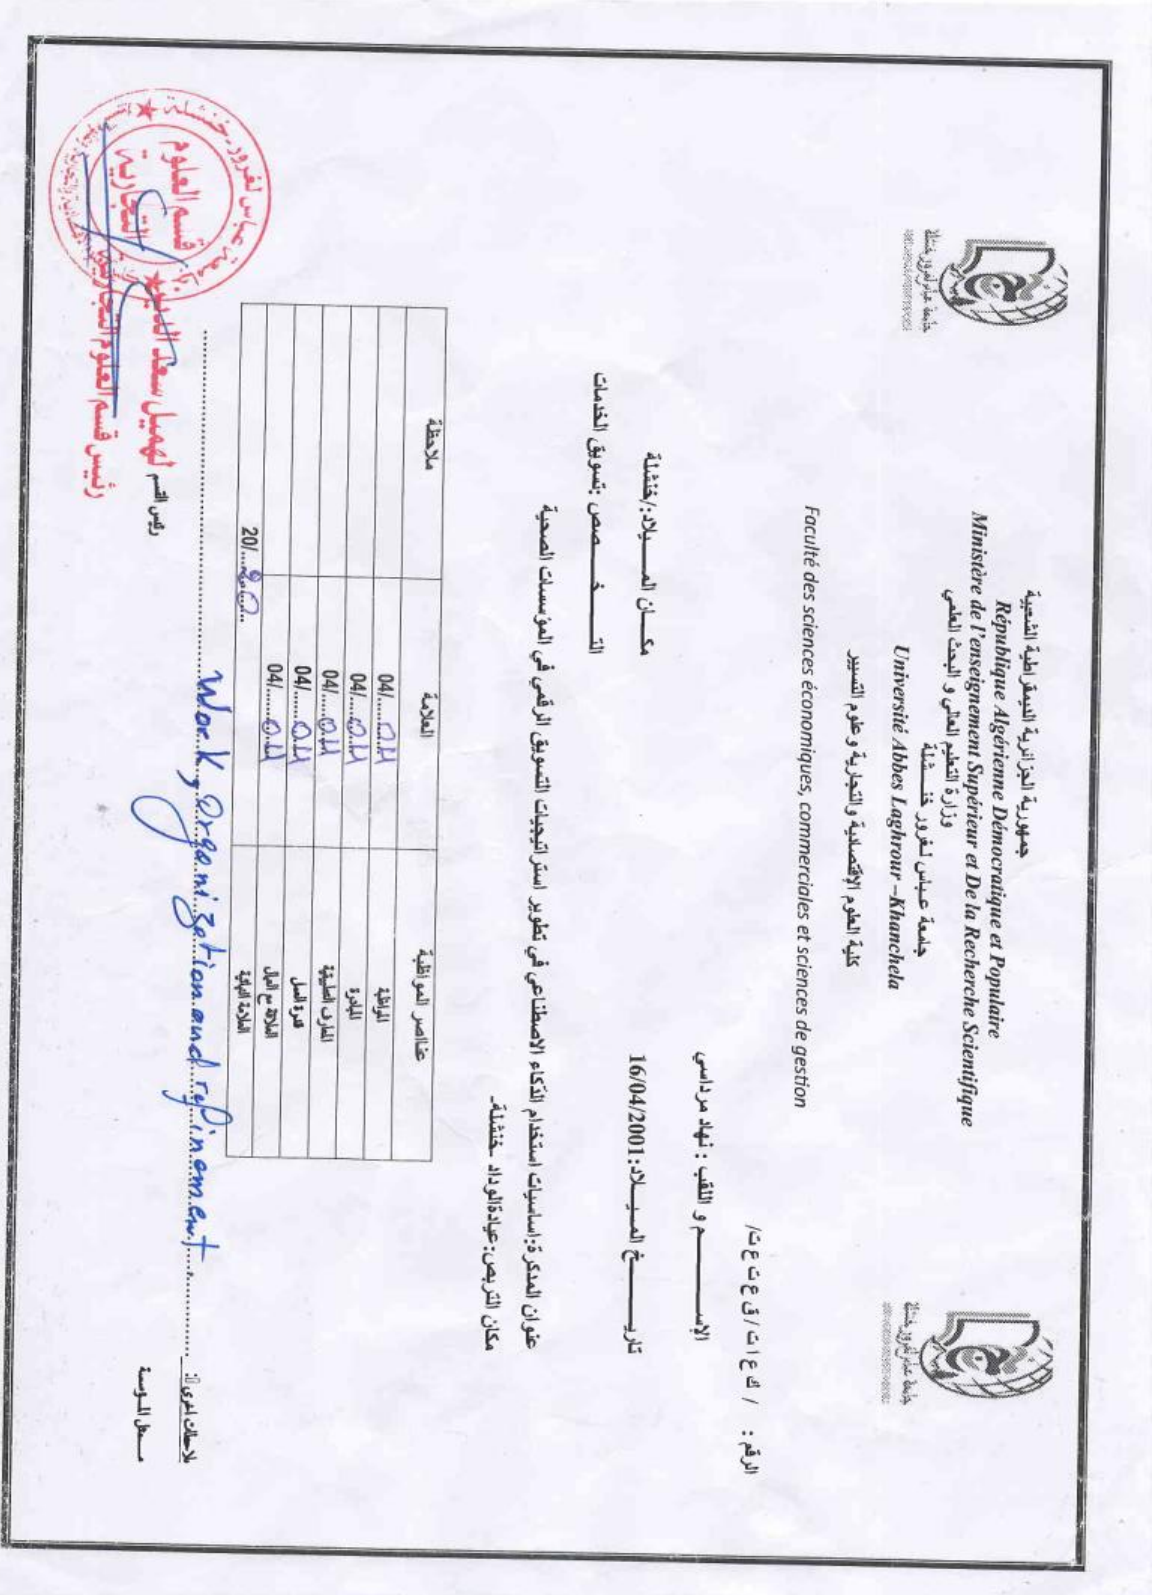 جمهورية الجزائرية الديمقراطية الشعبية
République Algérienne Démocratique et Populaire
Ministère de l'enseignement Supérieur et De la Recherche Scientifique
وزارة التعليم العالي و البحث العلمي
جامعة عباس لغرور خنــشلة
Université Abbes Laghrour –Khanchela
كلية العلوم الإقتصادية والتجارية وعلوم التسيير
Faculté des sciences économiques, commerciales et sciences de gestion
جامعة عباس لغرور خنشلة
جامعة عباس لغرور خنشلة
الرقم : / ك ع ا ت / ق ع ت ع ت/
الإســـــــم و اللقب : نهاد مرداسي
تاريـــــــخ الميـــلاد:16/04/2001 مكـــان المـــــيلاد:/خنشلة
التـــــخـــــصص :تسويق الخدمات
عنوان المذكرة:اساسيات استخدام الذكاء الاصطناعي في تطوير استراتيجيات التسويق الرقمي في المؤسسات الصحية
مكان التربص:عيادةالوداد -خنشلة-
عناصر المواظبة العلامة ملاحظة
المواظبة 04/....04
المبادرة 04/....04
المعارف التطبيقية 04/....04
قدرة العمل 04/....04
العلاقة مع العمال 04/....04
العلامة النهائية 20/...20...
ملاحظات اخرى: Work, Organization and refinement
رئيس القسم
لهميل سعد الدين
رئيس قسم العلوم التجارية
قسم العلوم
التجارية